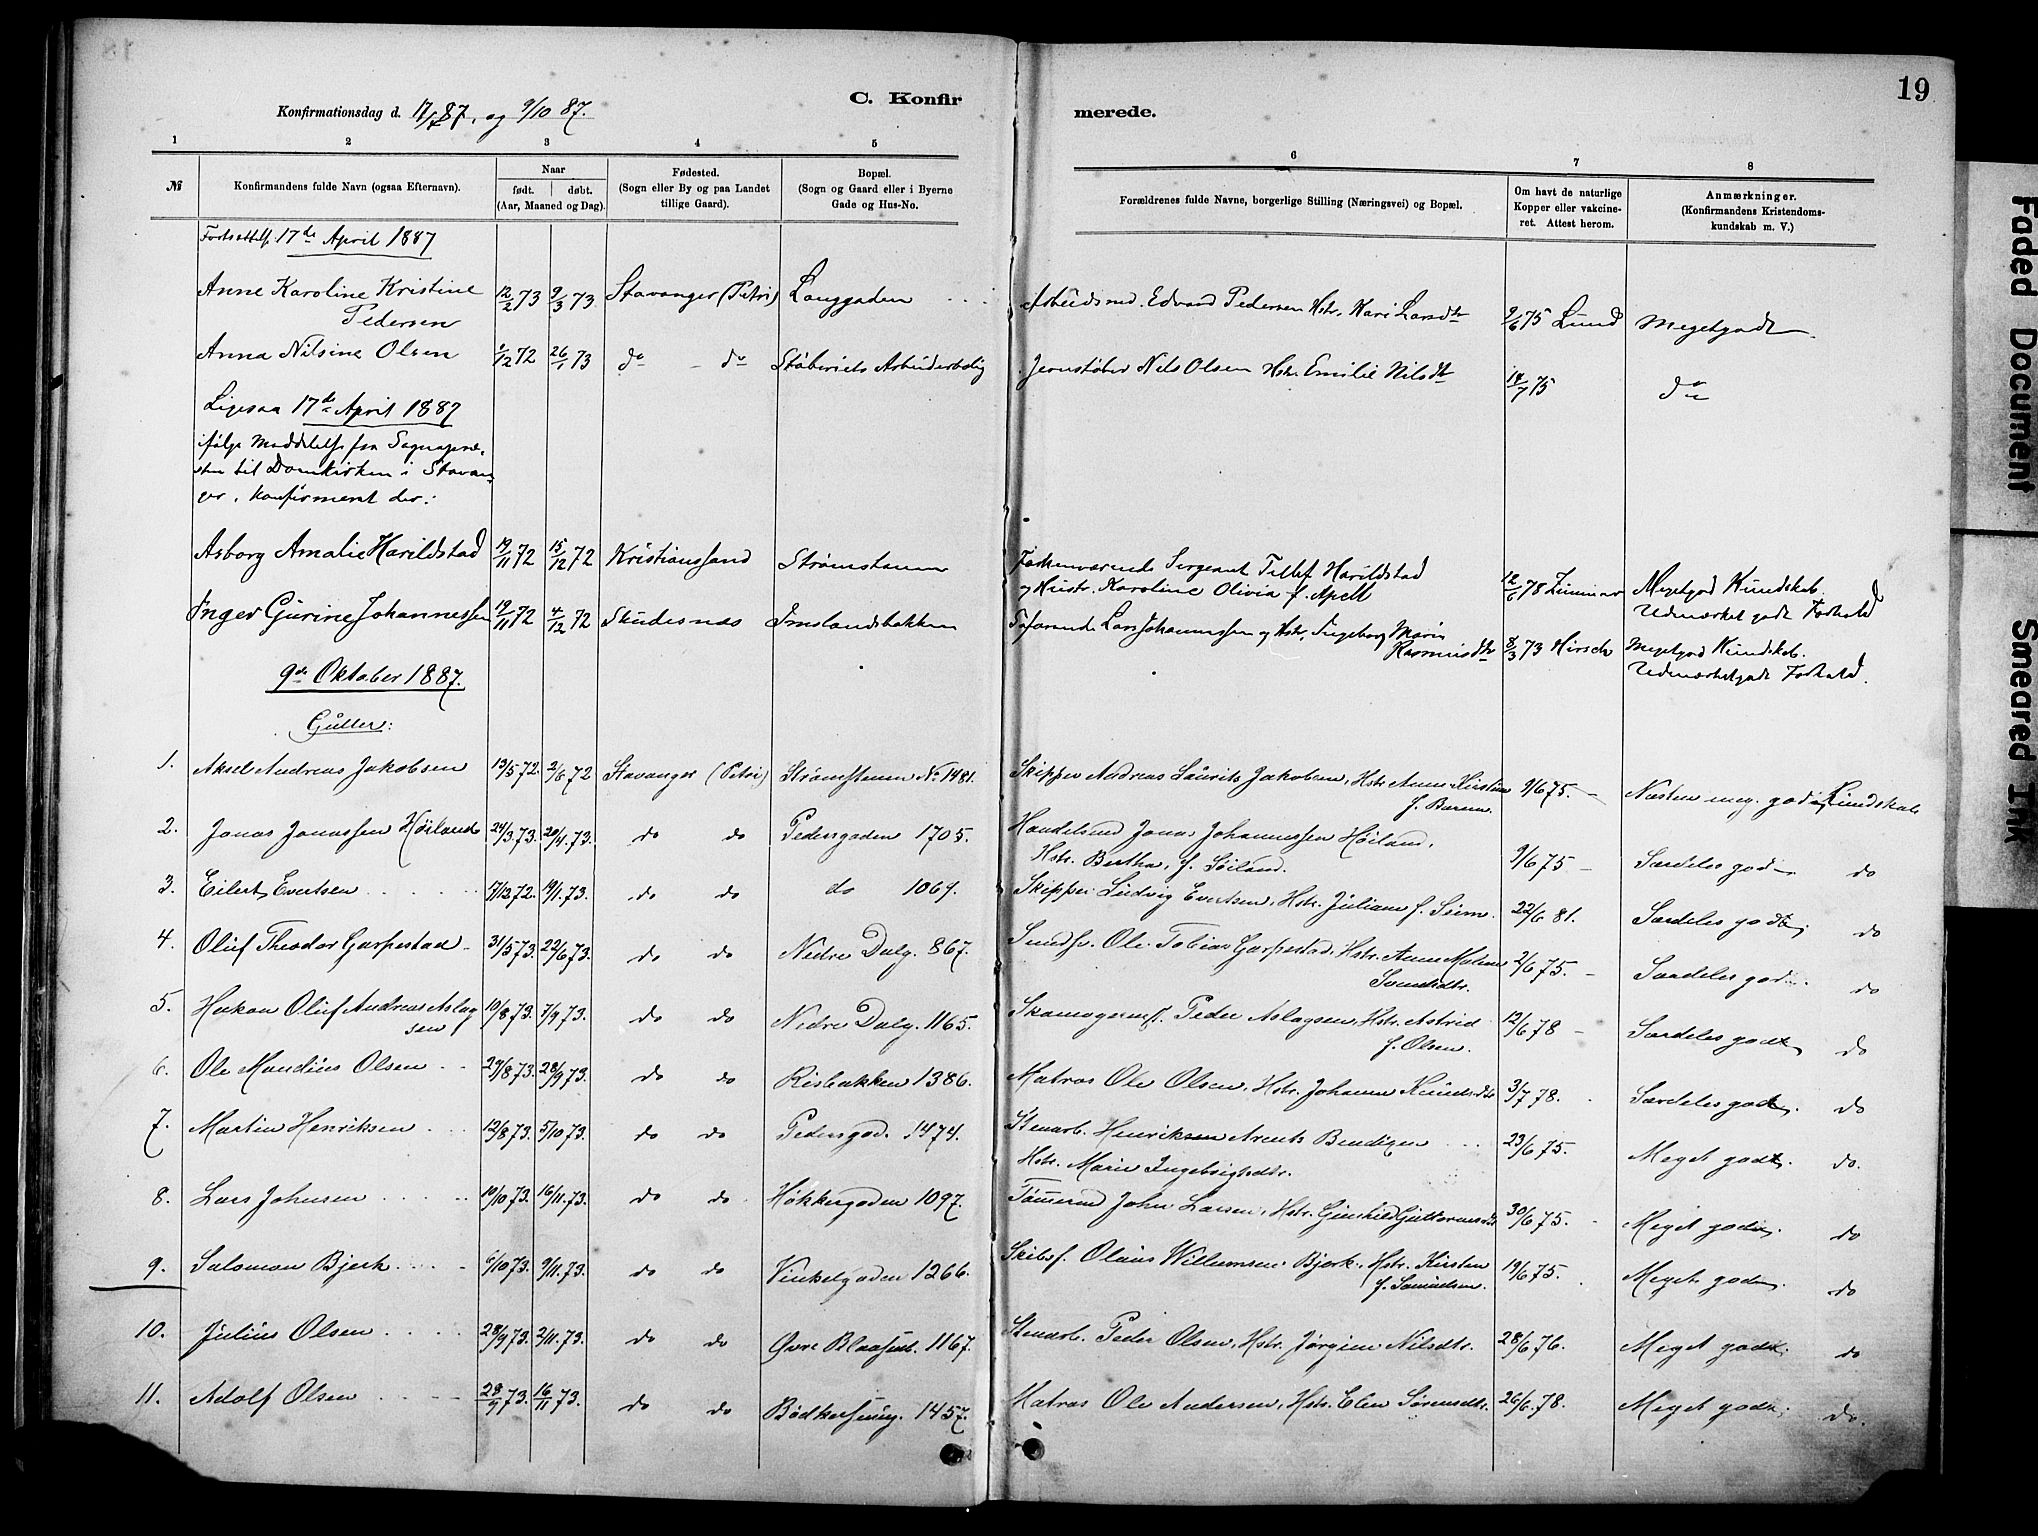 19
Konfirmationsdag d. 17/4 87, og 9/10 87.
C. Konfir
merede.
1 2 3 4 5 6 7 8
№
Konfirmandens fulde Navn (ogsaa Efternavn).
Naar
født. døbt.
(Aar, Maaned og Dag).
Fødested.
(Sogn eller By og paa Landet
tillige Gaard).
Bopæl.
(Sogn og Gaard eller i Byerne
Gade og Hus-No.
Forældrenes fulde Navne, borgerlige Stilling (Næringsvei) og Bopæl.
Om havt de naturlige
Kopper eller vakcine-
ret. Attest herom.
Anmærkninger.
(Konfirmandens Kristendoms-
kundskab m. V.)
Fortsættelse 17de April 1887
Anne Karoline Kristine 12/2 73 9/3 73. Stavanger (Petri) Langgaden Arbeidsmd. Edvard Pedersen Hstr. Kari Larsdtr 9/6 75 Lund Megetgodt
Pedersen
Anna Nilsine Olsen 1/12 72 26/1 73 do do Støberiets Arbeiderbolig Jernstøber Nils Olsen Hstr Emilie Nilsdtr 14/7 75 do
Ligesaa 17de April 1887
ifølge Meddelelse fra Sognepræ-
sten til Domkirken i Stavan-
ger, konfirmeret der:
Asborg Amalie Harildstad 19/11 72 15/12 72 Kristianssand Strømstenen Forhenværende Sergeant Tellef Harildstad 12/6 78 Megetgod Kundskab.
og Hustr. Karoline Olivia f. Apelt Udmærket godt Forhold
Inger Gurine Johannessen 19/11 72 4/12 72 Skudesnæs Imslandsbakken Søfarende Lars Johannessen og Hstr. Ingeborg Marie 8/3 73 Hirsch Megetgod Kundskab.
Rasmusdtr Udmærketgodt Forhold.
9de Oktober 1887.
Gutter:
1. Aksel Andreas Jakobsen 13/5 72. 2/6 72 Stavanger (Petri) Strømstenen No. 1481. Skipper Andreas Laurits Jakobsen, Hstr. Anne Kirstine 9/6 75. Næsten meg. god Kundskab
2. Jonas Jonassen Höiland 24/3 73. 20/4 73. do do Pedersgaden 1705. Handelsmd Jonas Johannessen Höiland, 9/6 75 Særdeles god do
Hstr. Bertha, f. Söiland.
3. Eilert Evertsen 5/12 72. 19/1 73. do do do 1067. Skipper Ludvig Evertsen, Hstr. Juliane f. Seim. 22/6 81. Særdeles godt do
4. Oluf Theodor Garpestad 31/5 73. 22/6 73. do do Nedre Dalg. 867. Ole Tobias Garpestad, Hstr. Anne Malene 2/6 75. Særdeles god do
Svendsdtr.
5. Hakon Oluf Andreas Aslag 10/8 73. 7/9 73. do do Nedre Dalg. 1165. Skomagerm. Peder Aslagsen, Hstr. Astrid 12/6 78 Særdeles godt do
sen f. Olsen.
6. Ole Mandius Olsen 27/8 73. 28/9 73. do do Risbakken 1386. Matros Ole Olsen, Hstr. Johanne Knudsdtr 3/7 78. Særdeles godt do
7. Martin Henriksen 12/8 73. 5/10 73. do do Pedersgad. 1474. Stenarb. Henriksen Arents Bendixen 23/6 75. Meget godt do.
Hstr. Marie Ingebrigtsdtr.
8. Lars Johnsen 10/10 73. 16/11 73. do do Høkkergaden 1097. Tömmermd John Larsen, Hstr. Gunhild Guttormsdtr 30/6 75. Meget godt do
9. Salomon Bjerk 6/10 73. 9/11 73. do do Vinkelgaden 1266. Skibsf. Olaus Willumsen Bjerk, Hstr. Kirsten 19/6 75. Meget godt do
f. Samuelsen.
10. Julius Olsen 28/9 73. 2/11 73. do do Øvre Blaasenb. 1167. Stenarb. Peder Olsen, Hstr. Jørgine Nilsdtr. 28/6 76. Meget godt do
11. Adolf Olsen 28/9 73. 16/11 73. do do 1457. Matros Ole Andersen, Hstr. Elen Sörensdtr. 26/6 78. Meget godt do.
Faded Document
Smeared Ink